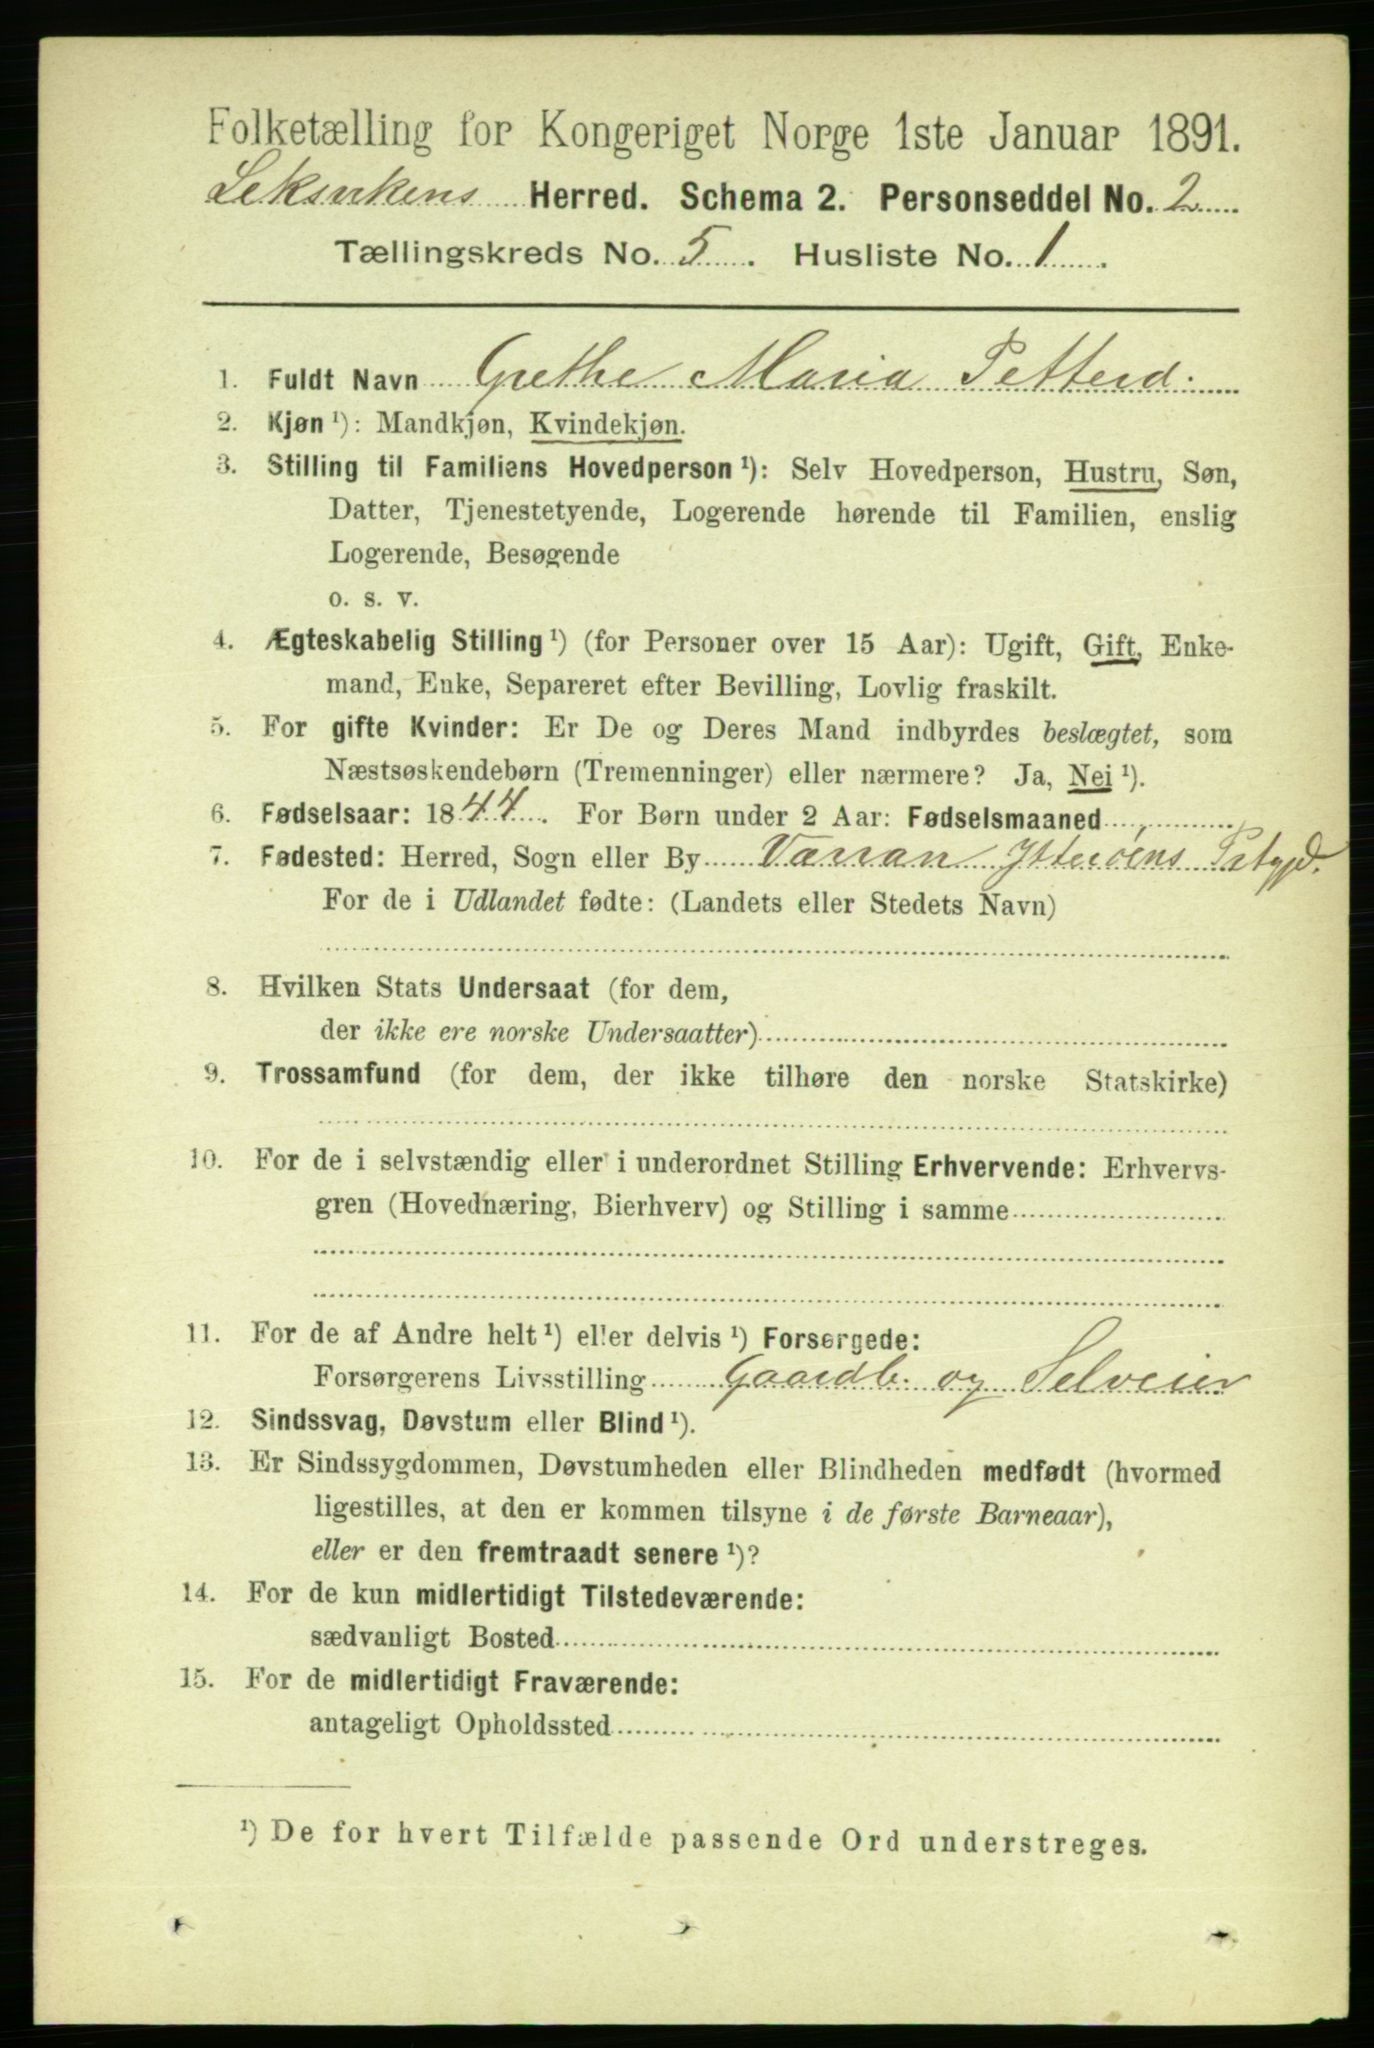 Folketælling for Kongeriget Norge 1ste Januar 1891.
Leksvikens Herred. Schema 2. Personseddel No. 2
Tællingskreds No. 5. Husliste No. 1.
1. Fuldt Navn Grethe Maria Petterd.
2. Kjøn ¹): Mandkjøn, Kvindekjøn.
3. Stilling til Familiens Hovedperson ¹): Selv Hovedperson, Hustru, Søn,
Datter, Tjenestetyende, Logerende hørende til Familien, enslig
Logerende, Besøgende
o. s. v.
4. Ægteskabelig Stilling ¹) (for Personer over 15 Aar): Ugift, Gift, Enke-
mand, Enke, Separeret efter Bevilling, Lovlig fraskilt.
5. For gifte Kvinder: Er De og Deres Mand indbyrdes beslægtet, som
Næstsøskendebørn (Tremenninger) eller nærmere? Ja, Nei ¹).
6. Fødselsaar: 1844. For Børn under 2 Aar: Fødselsmaaned
7. Fødested: Herred, Sogn eller By Værran Ytterøens Prstgjd.
For de i Udlandet fødte: (Landets eller Stedets Navn)
8. Hvilken Stats Undersaat (for dem,
der ikke ere norske Undersaatter)
9. Trossamfund (for dem, der ikke tilhøre den norske Statskirke)
10. For de i selvstændig eller i underordnet Stilling Erhvervende: Erhvervs-
gren (Hovednæring, Bierhverv) og Stilling i samme
11. For de af Andre helt ¹) eller delvis ¹) Forsørgede:
Forsørgerens Livsstilling Gaardb. og Selveier
12. Sindssvag, Døvstum eller Blind ¹).
13. Er Sindssygdommen, Døvstumheden eller Blindheden medfødt (hvormed
ligestilles, at den er kommen tilsyne i de første Barneaar),
eller er den fremtraadt senere ¹)?
14. For de kun midlertidigt Tilstedeværende:
sædvanligt Bosted
15. For de midlertidigt Fraværende:
antageligt Opholdssted
¹) De for hvert Tilfælde passende Ord understreges.